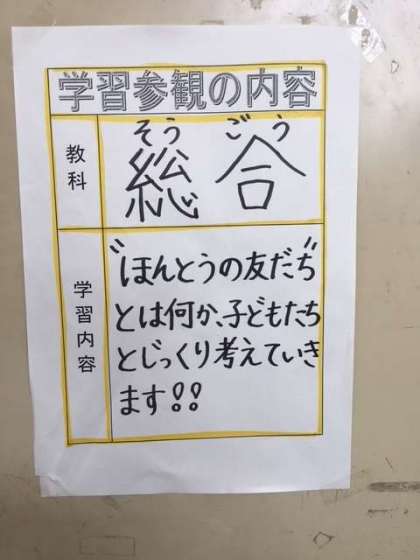 学習参観の内容
教科
そうごう
総合
学習内容
“ほんとうの友だち”
とは何か、子どもたち
とじっくり考えていき
ます!!